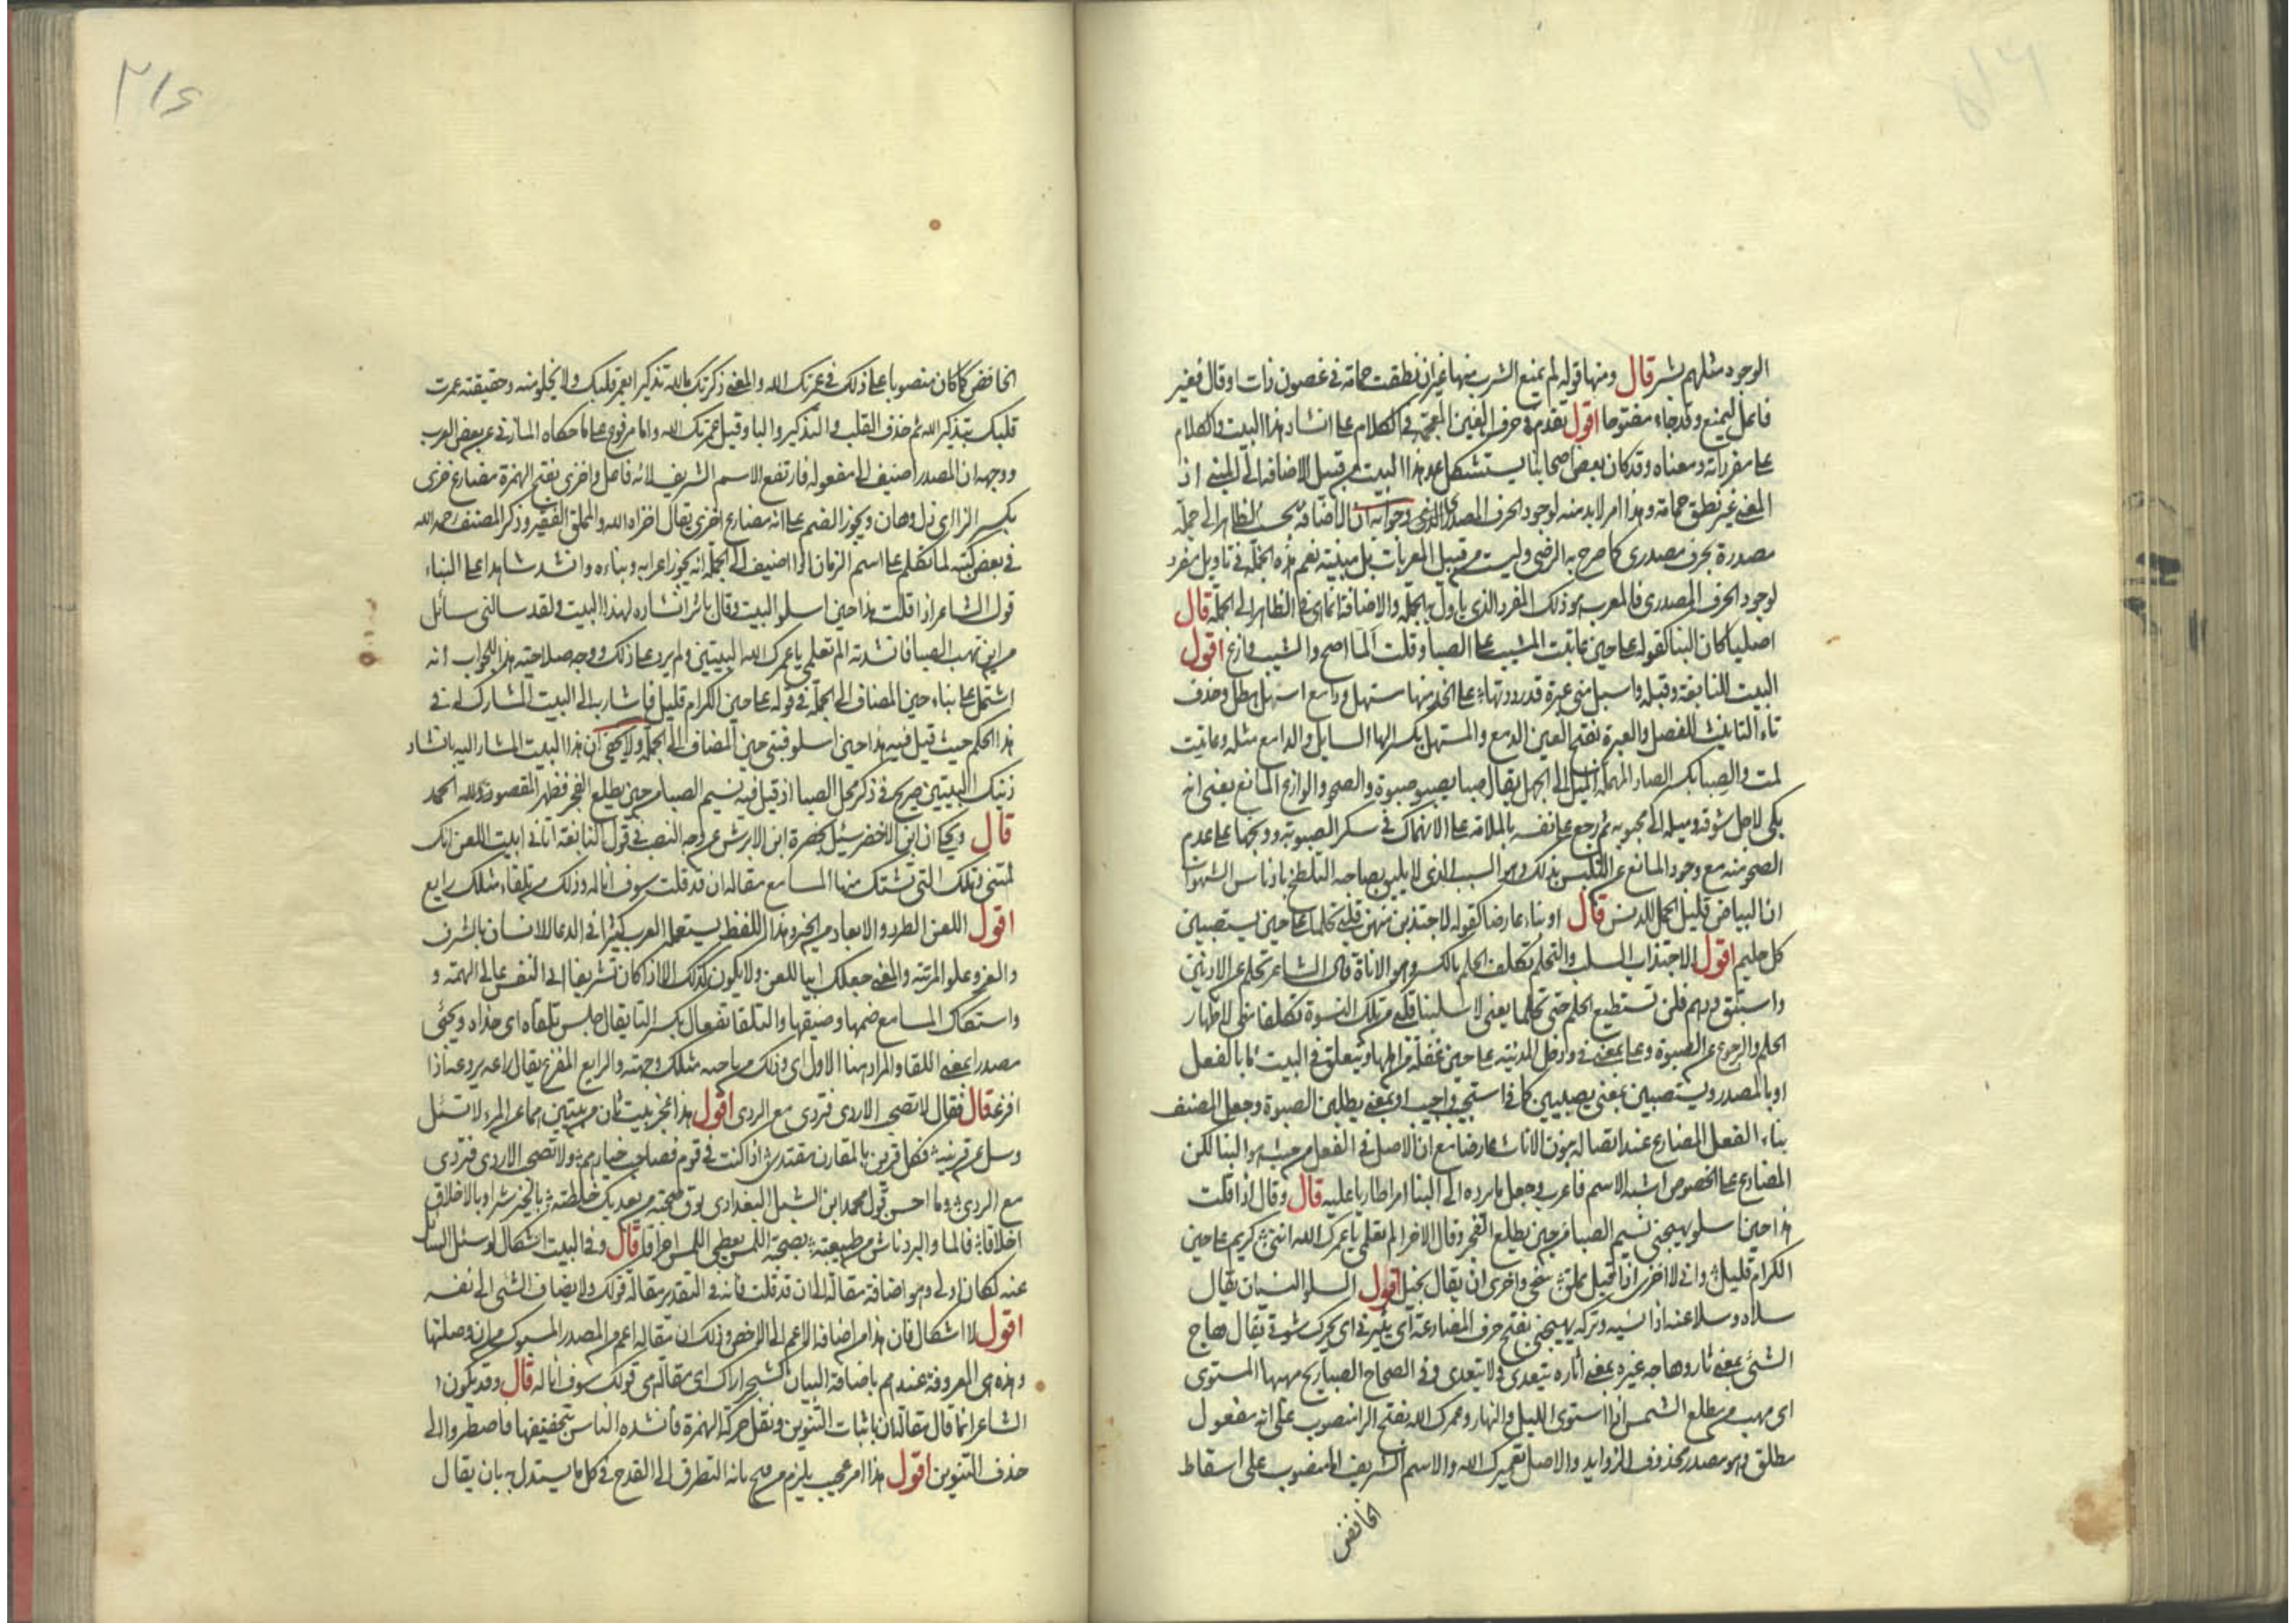 الوجود مثلهم بشر قال ومنها قوله لم يمنع الشرب منها غير ان نطقت حمامة في غصون ذات اوقال فغير
فاعل ليمنع وقد جاء مفتوحا اقول تقدم في حرف الغين المعجمة في الكلام على انشاد هذا البيت والكلام
على مفرداته ومعناه وقد كان بعض اصحابنا يستشكل عد هذا البيت من قبيل الاضافة الى المبني اذ
المعنى غير نطق حمامة وهذا امر لابد منه لوجود الحرف المصدري وجوابه ان الاضافة بحسب الظاهر الى جملة
مصدرة بحرف مصدري كما صرح به الرضي وليست من قبيل المعربات بل مبنية نعم هذه الجملة في تاويل مفرد
لوجود الحرف المصدري فالمعرب هو ذلك المفرد الذي ياول به الجملة والاضافة انما هي في الظاهر الى الجملة قال
اصليا كان البنا كقوله على حين عاتبت المشيب على الصبا وقلت ألما اصح والشيب وازع اقول
البيت للنابغة وقبله واسبل مني عبرة فرددتها على النحر منها مستهل ودامع استهل هطل وحذف
تاء التانيث للفصل والعبرة بفتح العين الدمع والمستهل بكسر الها السايل والدامع مثله وعاتبت
لمت والصبا بكسر الصاد المهملة الميل الى الجهل يقال صبا يصبو صبوة والصحو والوازع المانع يعني انه
بكى لاجل شوقه وميله الى محبوبه ثم رجع على نفسه بالملامة على الانهماك في سكر الصبوة ووبخها على عدم
الصحو منه مع وجود المانع عن التلبس بذلك وهو الشيب الذي لا يليق بصاحبه التلطخ بادناس الشهوات
ان البياض قليل الحمل للدنس قال او بناء عارضا كقوله لاجتذبن منهن قلبي تحلما على حين يستصبين
كل حليم اقول الاجتذاب السلب والتحلم تكلف الحلم بالكسر وهو الاناة قال الشاعر تحلم عن الادنين
واستبق ودهم فلن تستطيع الحلم حتى تحلما يعني لا سلبن قلبي من تلك النسوة تكلفا مني لاظهار
الحلم والرجوع عن الصبوة وعلى بمعنى في ودخل المدينة على حين غفلة من اهلها ويتعلق في البيت اما بالفعل
او بالمصدر ويستصبين بمعنى يصبين كما في استجب واجب او بمعنى يطلبن الصبوة وجعل المصنف
بناء الفعل المضارع عند اتصاله بنون الاناث عارضا مع ان الاصل في الفعل من حيث هو البنا لكن
المضارع على الخصوص اشبه الاسم فاعرب وجعل ما يرده الى البنا امرا طاريا عليه قال وقال اذا قلت
هذا حين اسلو يهيجني نسيم الصبا من حين يطلع الفجر وقال الاخر الم تعلمي يا عمرك الله انني كريم على حين
الكرام قليل واني لا اخزى اذا قيل مملق سخي واخزى ان يقال بخيل اقول السلو النسيان يقال
سلاه وسلا عنه اذا نسيه وتركه يهيجني بفتح حرف المضارعة اي يثيرني اي يحرك شوقي يقال هاج
الشئ بمعنى ثار وهاجه غيره بمعنى اثاره يتعدى ولا يتعدى وفي الصحاح الصبا ريح مهبها المستوى
اي مهب من مطلع الشمس اذا استوى الليل والنهار وعمرك الله بفتح الرا منصوب على انه مفعول
مطلق وهو مصدر محذوف الزوايد والاصل تعميرك الله والاسم الشريف المنصوب على اسقاط
الخافض
٢١٤
الخافض كما كان منصوبا على ذلك في عمرتك الله والمعنى ذكرتك بالله تذكيرا يعمر قلبك ولا يخلو منه وحقيقته عمرت
قلبك بتذكير الله ثم حذف القلب والتذكير والبا وقيل عمرتك الله واما مرفوع على ما حكاه المازني عن بعض العرب
ووجهه ان المصدر اضيف الى مفعوله فارتفع الاسم الشريف لانه فاعل واخزى بفتح الهمزة مضارع خزى
بكسر الزا اي ذل وهان ويجوز الضم على انه مضارع اخزى يقال اخزاه الله والمملق الفقير وذكر المصنف رحمه الله
في بعض كتبه لما تكلم على اسم الزمان اذا اضيف الى الجملة انه يجوز اعرابه وبناءه وانشد شاهدا على البناء
قول الشاعر اذا قلت هذا حين اسلو البيت وقال باثر انشاده لهذا البيت ولقد سالني سائل
من اين تهب الصبا فانشدته الم تعلمي يا عمرك الله البيتين ولم يرد على ذلك ووجه صلاحيته هذا للجواب انه
اشتمل على بناء حين المضاف الى الجملة في قوله على حين الكرام قليل فاشار به الى البيت المشارك له في
هذا الحكم حيث قيل فيه هذا حين اسلو فبنى حين المضاف الى الجملة ولا يخفى ان هذا البيت المشار اليه بانشاد
ذينك البيتين صريح في ذكر محل الصبا اذ قيل فيه نسيم الصبا من حين يطلع الفجر فظهر المقصود ولله الحمد
قال ويحكى ان ابن الاخضر سئل بحضرة ابن الابرش عن وجه النصب في قول النابغة اتاني ابيت اللعن انك
لمتني وتلك التي تستك منها المسامع مقالة ان قد قلت سوف اناله وذلك من تلقاء مثلك رايع
اقول اللعن الطرد والابعاد من الخير وهذا اللفظ يستعمله العرب كثيرا في الدعا للانسان بالشرف
والعز وعلو المرتبة والمعنى جعلك ابيا للعن ولا يكون كذلك الا اذا كان شريفا ابي النفس عالي الهمة و
واستكاك المسامع صممها وضيقها والتلقا تفعال بكسر التا يقال جلس تلقاه اي حذاه ويجئ
مصدرا بمعنى اللقا والمراد هنا الاول اي وذلك من ناحية مثلك وجهته والرايع المفزع يقال راعه يروعه اذا
افزعه قال فقال لا تصحب الاردى فتردى مع الردي اقول هذا عجز بيت ثان من بيتين هما عن المرء لا تسئل
وسل عن قرينه فكل قرين بالمقارن مقتدي اذا كنت في قوم فصاحب خيارهم ولا تصحب الاردى فتردى
مع الردي وما احسن قول محمد ابن الشبل البغدادي توق صحبته من يعديك خلطته بالخير شرا وبالاخلاق
اخلاقا فالما والبرد ناش من طبيعته بصحبة اللمس يعطي اللمس احراقا قال وفي البيت اشكال لو سئل السائل
عنه لكان اولى وهو اضافة مقالة الى ان قد قلت فانه في التقدير مقالة قولك ولا يضاف الشئ الى نفسه
اقول لا اشكال فان هذا من اضافة الاعم الى الاخص وذلك ان مقالة اعم من المصدر المسبوك من ان وصلتها
وهذه هي المعروفة عندهم باضافة البيان كشجر اراك اي مقالة هي قولك سوف اناله قال وقد يكون
الشاعر انما قال مقالة ان باثبات التنوين ونقل حركة الهمزة فانشده الناس بتحقيقها فاضطروا الى
حذف التنوين اقول هذا امر عجيب يلزم من فتح بابه التطرق الى القدح في كل ما يستدل به بان يقال